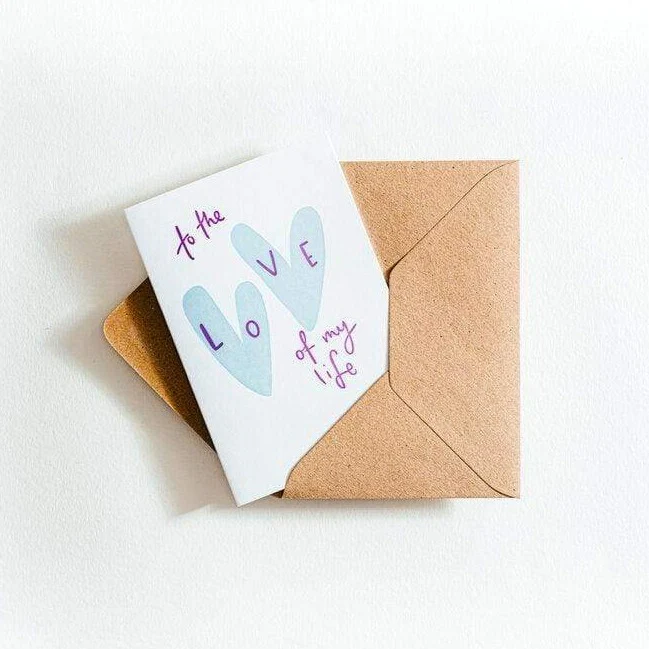 to the
LOVE
of my
life